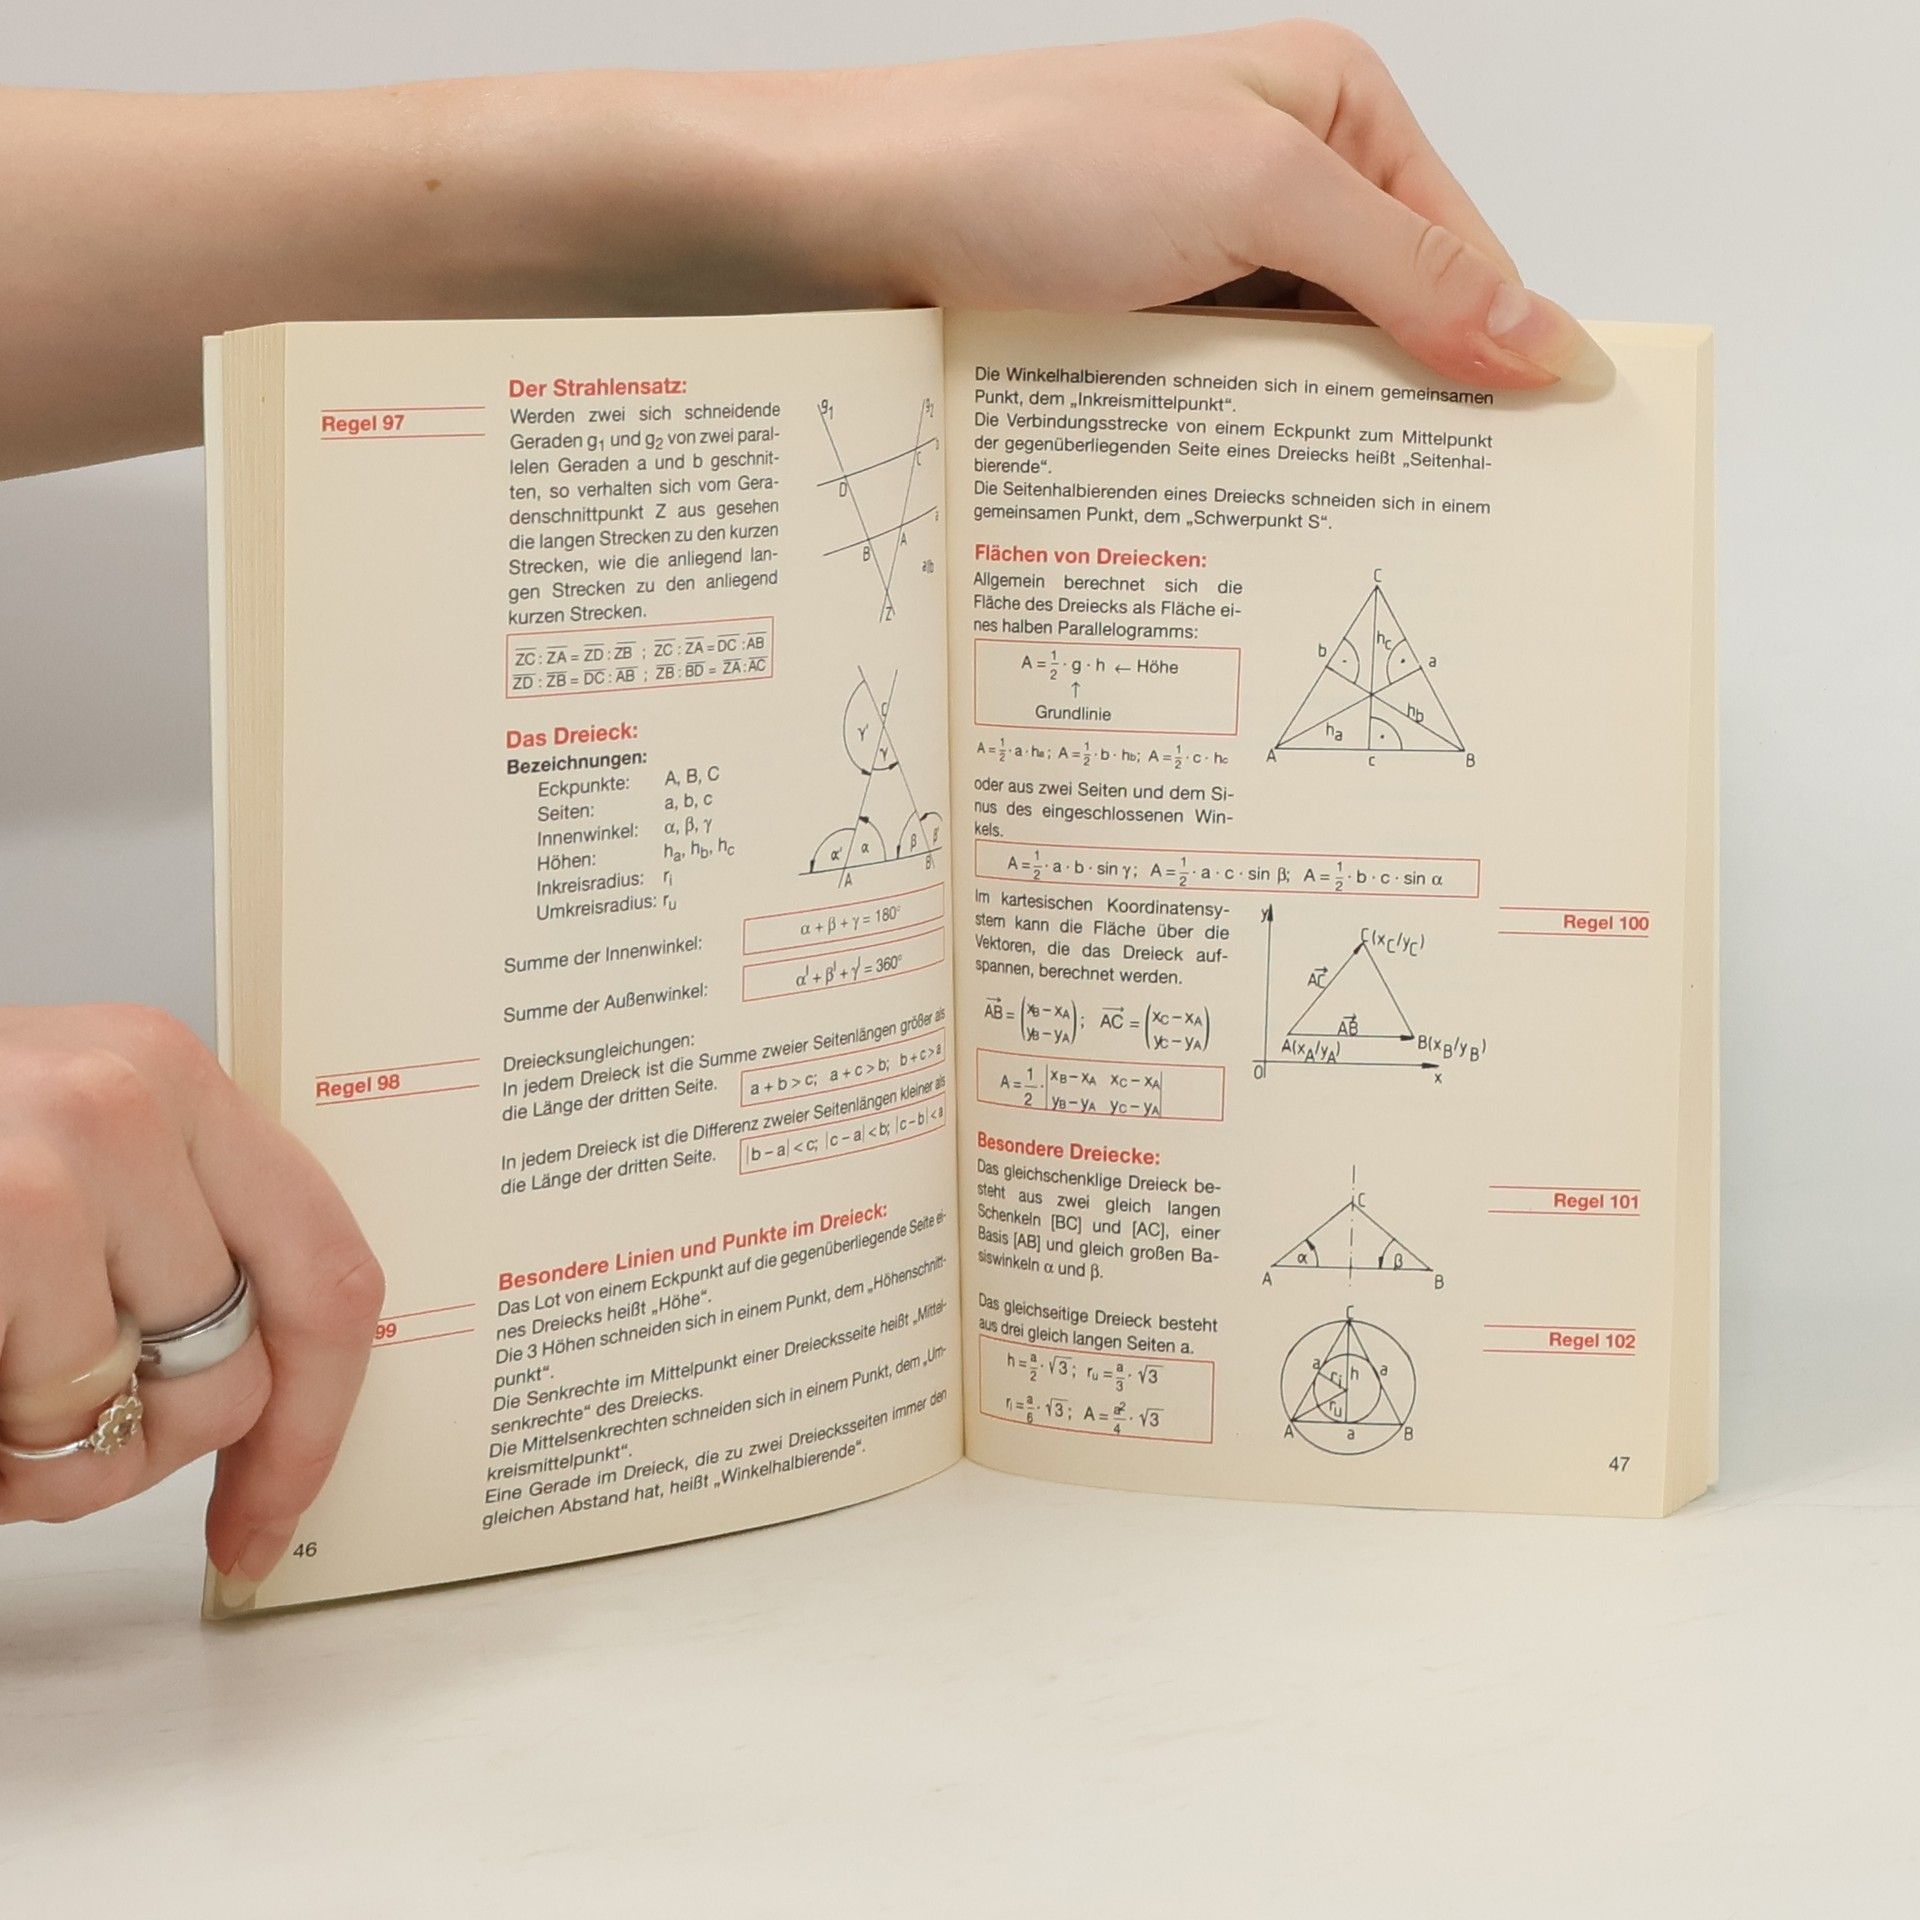 Regel 97
Der Strahlensatz:
Werden zwei sich schneidende
Geraden g₁ und g₂ von zwei paral-
lelen Geraden a und b geschnit-
ten, so verhalten sich vom Gera-
denschnittpunkt Z aus gesehen
die langen Strecken zu den kurzen
Strecken, wie die anliegend lan-
gen Strecken zu den anliegend
kurzen Strecken.
g₁ g₂
D C
B A
a||b
Z
Z̅C̅ : Z̅A̅ = Z̅D̅ : Z̅B̅ ; Z̅C̅ : Z̅A̅ = D̅C̅ : A̅B̅
Z̅D̅ : Z̅B̅ = D̅C̅ : A̅B̅ ; Z̅B̅ : B̅D̅ = Z̅A̅ : A̅C̅
Das Dreieck:
Bezeichnungen:
Eckpunkte: A, B, C
Seiten: a, b, c
Innenwinkel: α, β, γ
Höhen: hₐ, h_b, h_c
Inkreisradius: rᵢ
Umkreisradius: rᵤ
C
γ' γ
α' α β β'
A B
Summe der Innenwinkel: α + β + γ = 180°
Summe der Außenwinkel: α' + β' + γ' = 360°
Regel 98
Dreiecksungleichungen:
In jedem Dreieck ist die Summe zweier Seitenlängen größer als
die Länge der dritten Seite. a + b > c; a + c > b; b + c > a
In jedem Dreieck ist die Differenz zweier Seitenlängen kleiner als
die Länge der dritten Seite. |b − a| < c; |c − a| < b; |c − b| < a
99
Besondere Linien und Punkte im Dreieck:
Das Lot von einem Eckpunkt auf die gegenüberliegende Seite ei-
nes Dreiecks heißt „Höhe“.
Die 3 Höhen schneiden sich in einem Punkt, dem „Höhenschnitt-
punkt“.
Die Senkrechte im Mittelpunkt einer Dreiecksseite heißt „Mittel-
senkrechte“ des Dreiecks.
Die Mittelsenkrechten schneiden sich in einem Punkt, dem „Um-
kreismittelpunkt“.
Eine Gerade im Dreieck, die zu zwei Dreiecksseiten immer den
gleichen Abstand hat, heißt „Winkelhalbierende“.
46
Die Winkelhalbierenden schneiden sich in einem gemeinsamen
Punkt, dem „Inkreismittelpunkt“.
Die Verbindungsstrecke von einem Eckpunkt zum Mittelpunkt
der gegenüberliegenden Seite eines Dreiecks heißt „Seitenhal-
bierende“.
Die Seitenhalbierenden eines Dreiecks schneiden sich in einem
gemeinsamen Punkt, dem „Schwerpunkt S“.
Flächen von Dreiecken:
Allgemein berechnet sich die
Fläche des Dreiecks als Fläche ei-
nes halben Parallelogramms:
A = 1/2 · g · h ← Höhe
↑
Grundlinie
A = 1/2 · a · hₐ; A = 1/2 · b · h_b; A = 1/2 · c · h_c
C
b h_c a
hₐ h_b
A c B
oder aus zwei Seiten und dem Si-
nus des eingeschlossenen Win-
kels.
A = 1/2 · a · b · sin γ; A = 1/2 · a · c · sin β; A = 1/2 · b · c · sin α
Regel 100
Im kartesischen Koordinatensy-
stem kann die Fläche über die
Vektoren, die das Dreieck auf-
spannen, berechnet werden.
AB⃗ = (x_B − x_A y_B − y_A); AC⃗ = (x_C − x_A y_C − y_A)
A = 1/2 · |x_B − x_A x_C − x_A
y_B − y_A y_C − y_A|
y
C(x_C/y_C)
AC⃗
AB⃗
A(x_A/y_A) B(x_B/y_B)
0 x
Besondere Dreiecke:
Regel 101
Das gleichschenklige Dreieck be-
steht aus zwei gleich langen
Schenkeln [BC] und [AC], einer
Basis [AB] und gleich großen Ba-
siswinkeln α und β.
C
α β
A B
Regel 102
Das gleichseitige Dreieck besteht
aus drei gleich langen Seiten a.
h = a/2 · √3; rᵤ = a/3 · √3
rᵢ = a/6 · √3; A = a²/4 · √3
C
a h a
rᵢ
rᵤ
A a B
47